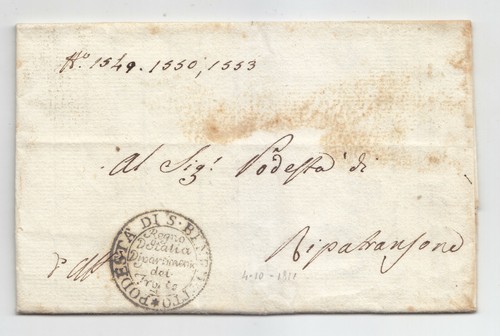 N.º 1549. 1550, 1553
Al Sig.r Podestà di
Ripatransone
PODESTÀ DI S. BENEDETTO
Regno
D'Italia
Dipartimento
del
Tronto
4-10-1811